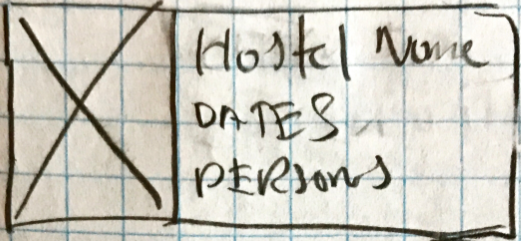 Hostel Name
DATES
PERSONS